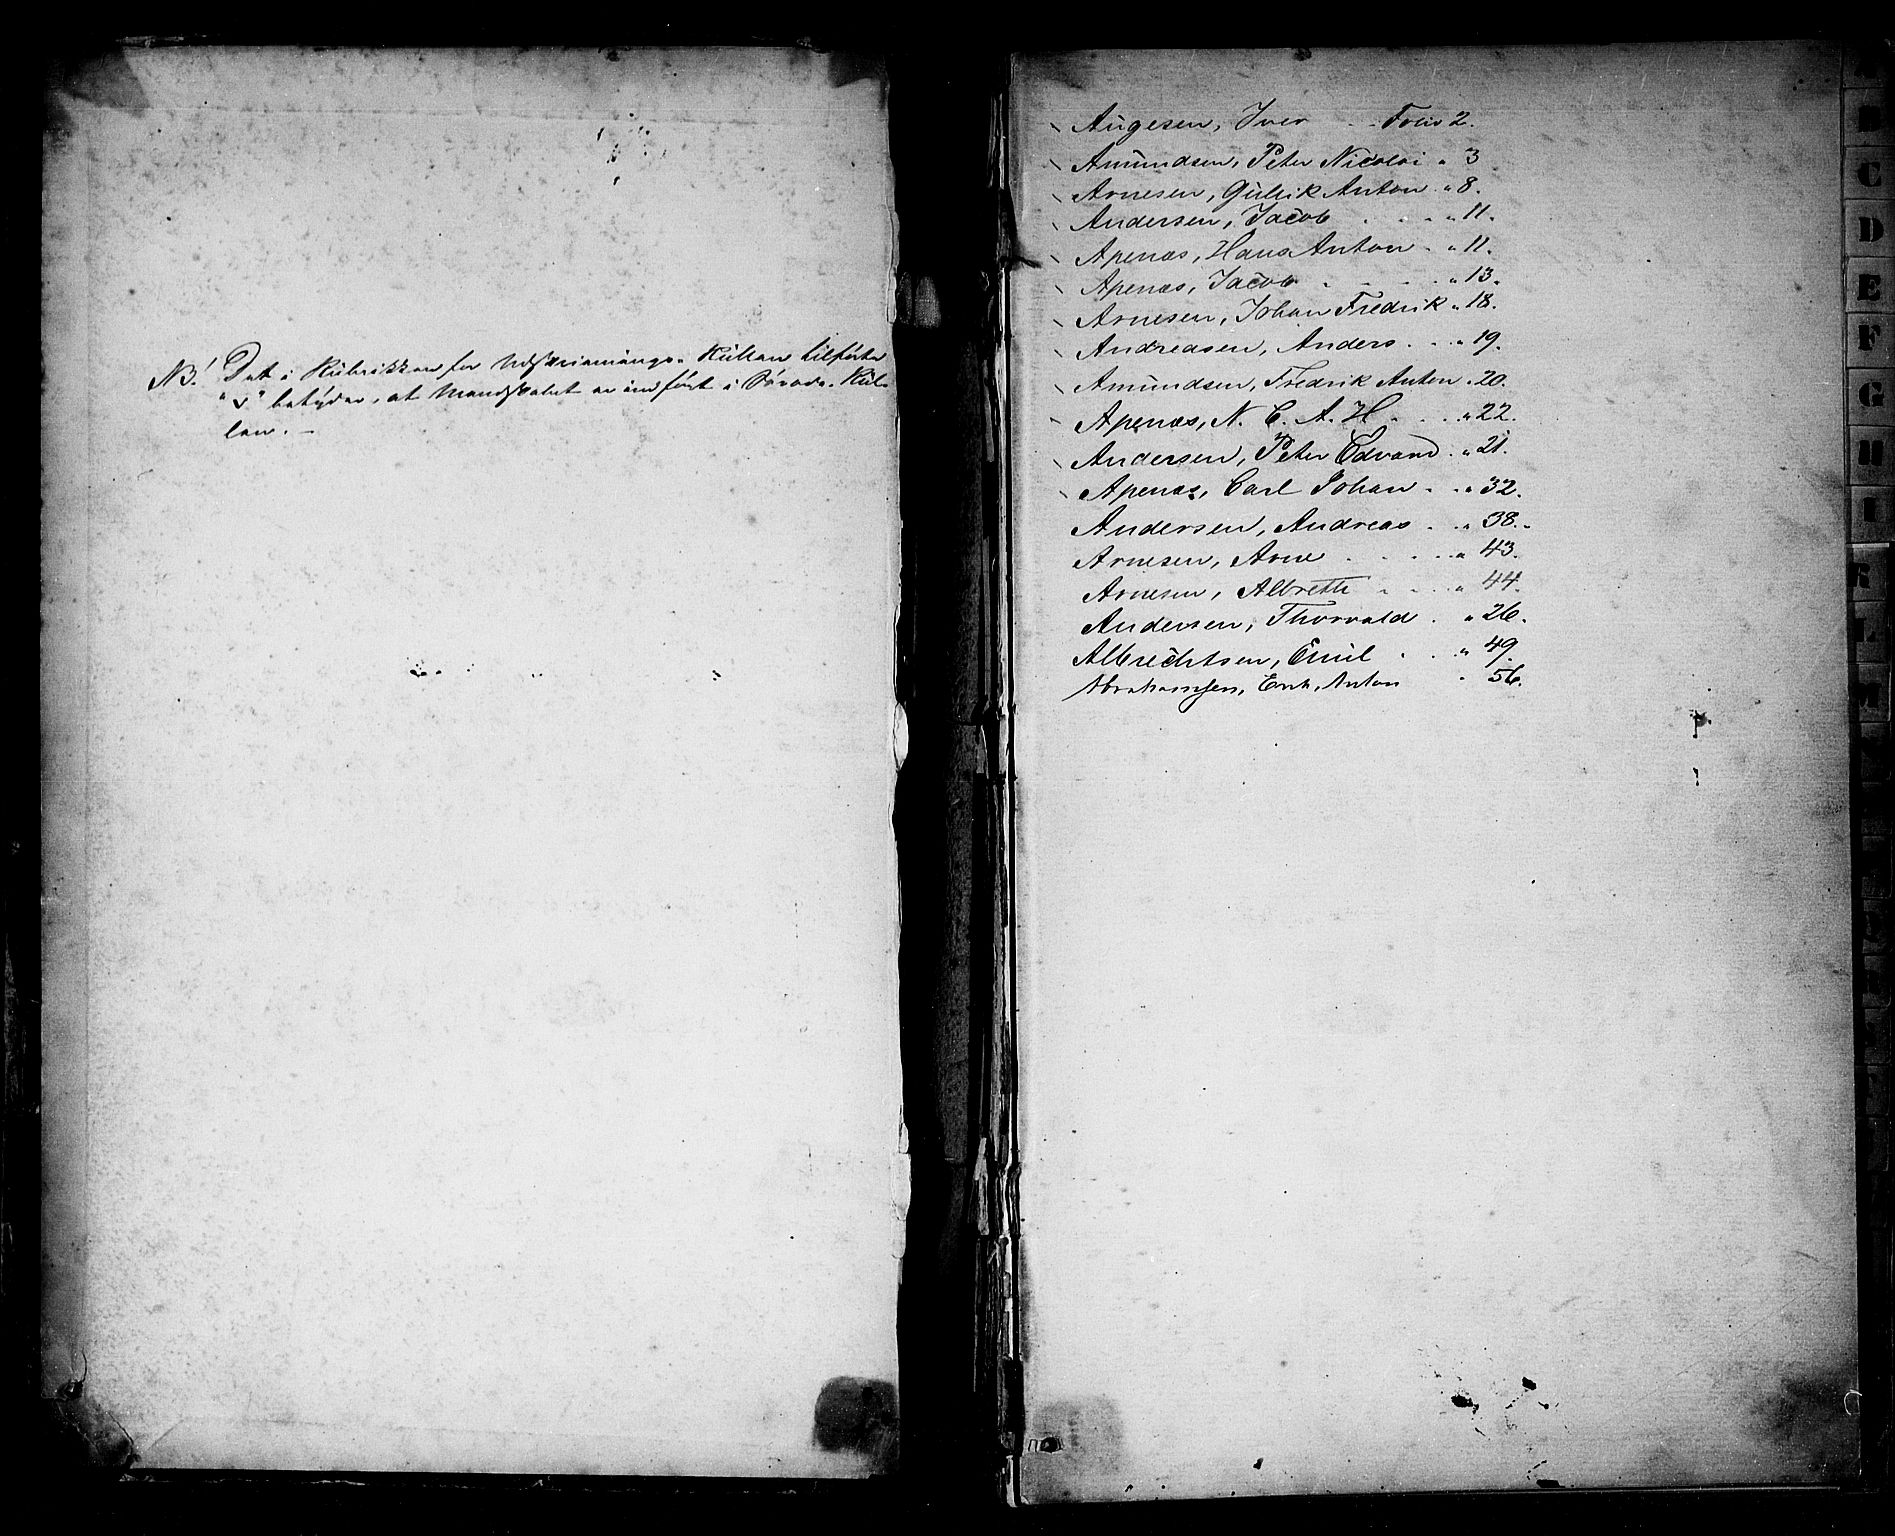 NB! Det i Rubrikken for Udskrivnings-Rullen tilførte
"v" betyder, at Mandskabet er indført i Søværn-Rul-
len. —
Augesen, Iver . . Folio 2.
Amundsen, Peter Nicolai " 3
Arnesen, Gulrik Anton . " 8.
Andersen, Jacob . . . " 11.
Apenæs, Hans Anton . " 11.
Apenæs, Jacob . . . . " 13.
Arnesen, Johan Fredrik " 18.
Andreasen, Anders . . . " 19.
Amundsen, Fredrik Anton " 20.
Apenæs, N. C. A. H. . . " 22.
Andersen, Peter Edvard . " 21.
Apenæs, Carl Johan . . " 32.
Andersen, Andreas . . " 38.
Arnesen, Arne . . . . " 43.
Arnesen, Albreth . . . " 44.
Andersen, Thorvald . " 26.
Albrechtsen, Emil . . " 49.
Abrahamsen, Erik, Anton " 56.
A
B
C
D
E
F
G
H
I
K
L
M